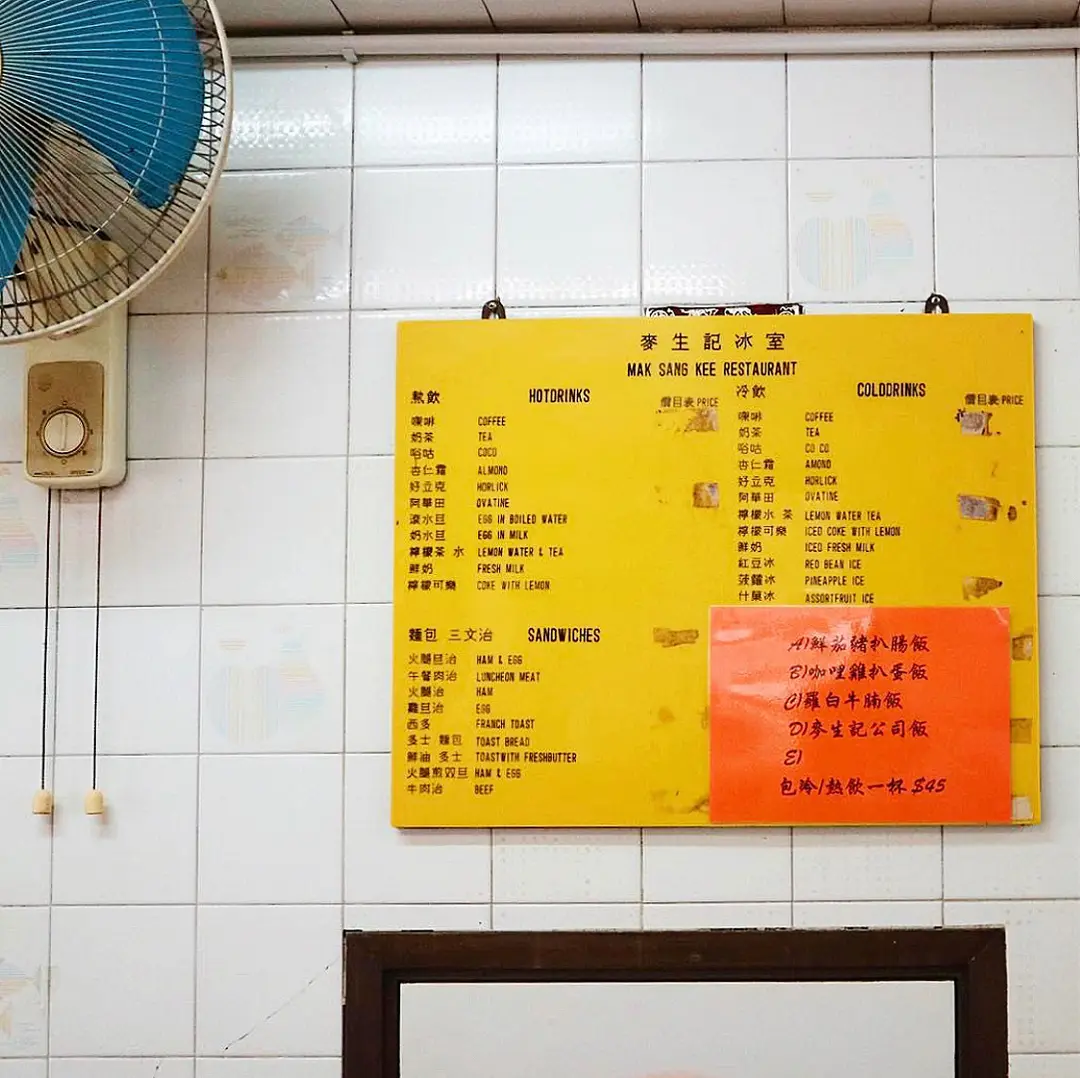 麥生記冰室
MAK SANG KEE RESTAURANT
熱飲 HOTDRINKS
價目表 PRICE
嘜啡 COFFEE
奶茶 TEA
哈咕 COCO
杏仁霜 ALMOND
好立克 HORLICK
阿華田 OVATINE
滾水旦 EGG IN BOILED WATER
奶水旦 EGG IN MILK
檸檬茶 水 LEMON WATER & TEA
鮮奶 FRESH MILK
檸檬可樂 COKE WITH LEMON
麵包 三文治 SANDWICHES
火腿旦治 HAM & EGG
午餐肉治 LUNCHEON MEAT
火腿治 HAM
雞旦治 EGG
西多 FRANCH TOAST
多士 麵包 TOAST BREAD
鮮油 多士 TOASTWITH FRESHBUTTER
火腿煎双旦 HAM & EGG
牛肉治 BEEF
冷飲 COLDDRINKS
價目表 PRICE
嘜啡 COFFEE
奶茶 TEA
哈咕 CO CO
杏仁霜 AMOND
好立克 HORLICK
阿華田 OVATINE
檸檬水 茶 LEMON WATER TEA
檸檬可樂 ICED COKE WITH LEMON
鮮奶 ICED FRESH MILK
紅豆冰 RED BEAN ICE
菠蘿冰 PINEAPPLE ICE
什菓冰 ASSORTFRUIT ICE
A)鮮茄豬扒腸飯
B)咖哩雞扒蛋飯
C)羅白牛腩飯
D)麥生記公司飯
E)
包冷/熱飲一杯 $45